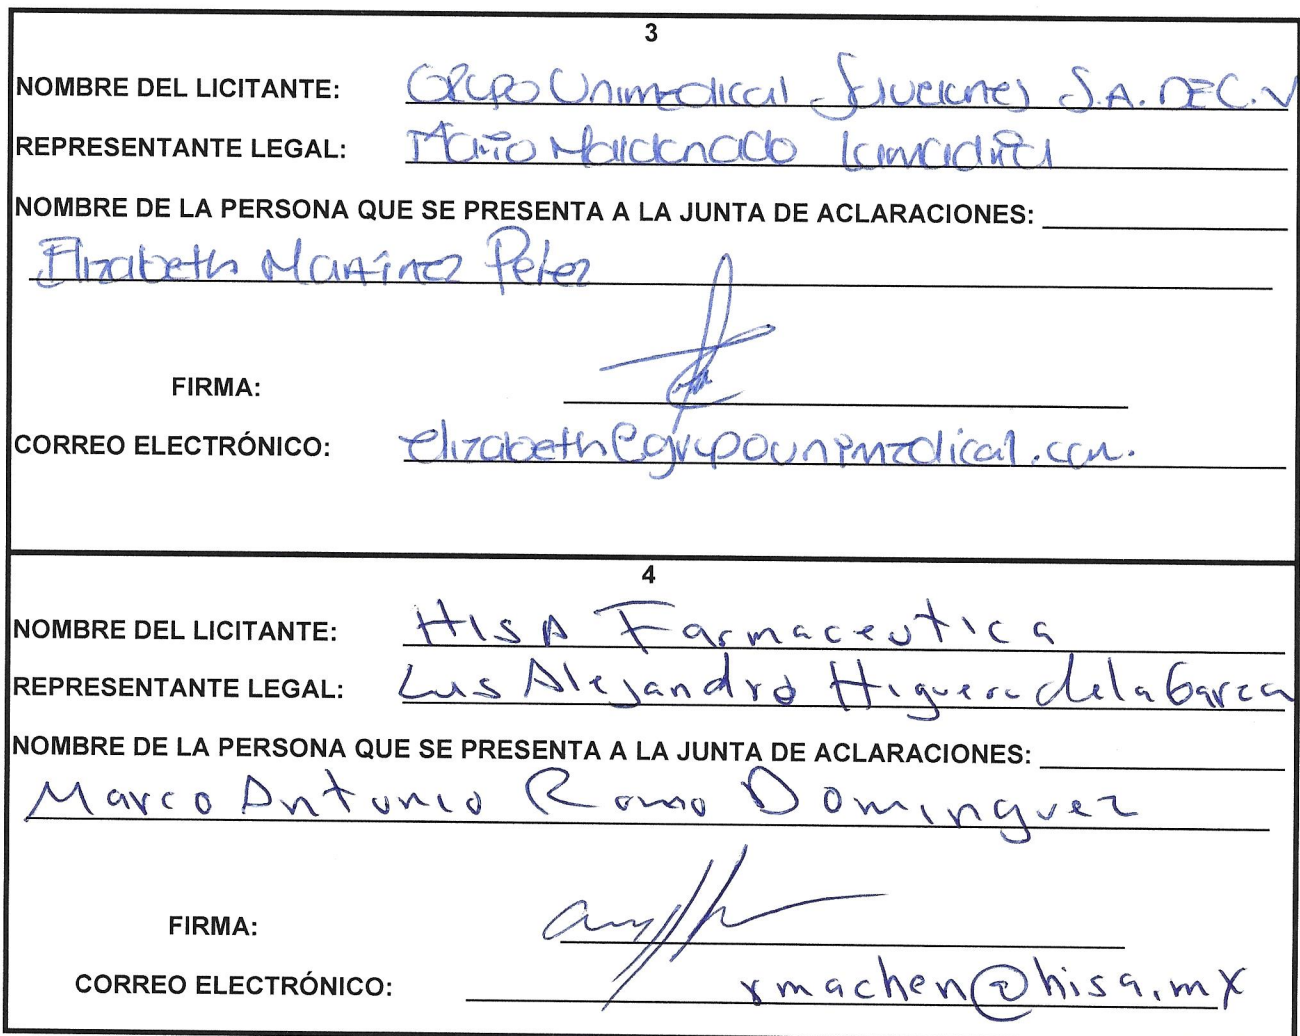 3
NOMBRE DEL LICITANTE: Grupo Unimedical Soluciones S.A. DE C.V
REPRESENTANTE LEGAL: Mario Maldonado
NOMBRE DE LA PERSONA QUE SE PRESENTA A LA JUNTA DE ACLARACIONES:
Elizabeth Martínez Pérez
FIRMA:
CORREO ELECTRÓNICO: elizabeth@grupounimedical.com.
4
NOMBRE DEL LICITANTE: HISA Farmaceutica
REPRESENTANTE LEGAL: Luis Alejandro Higuera de la Garza
NOMBRE DE LA PERSONA QUE SE PRESENTA A LA JUNTA DE ACLARACIONES:
Marco Antonio Romo Dominguez
FIRMA:
CORREO ELECTRÓNICO: rmachen@hisa.mx